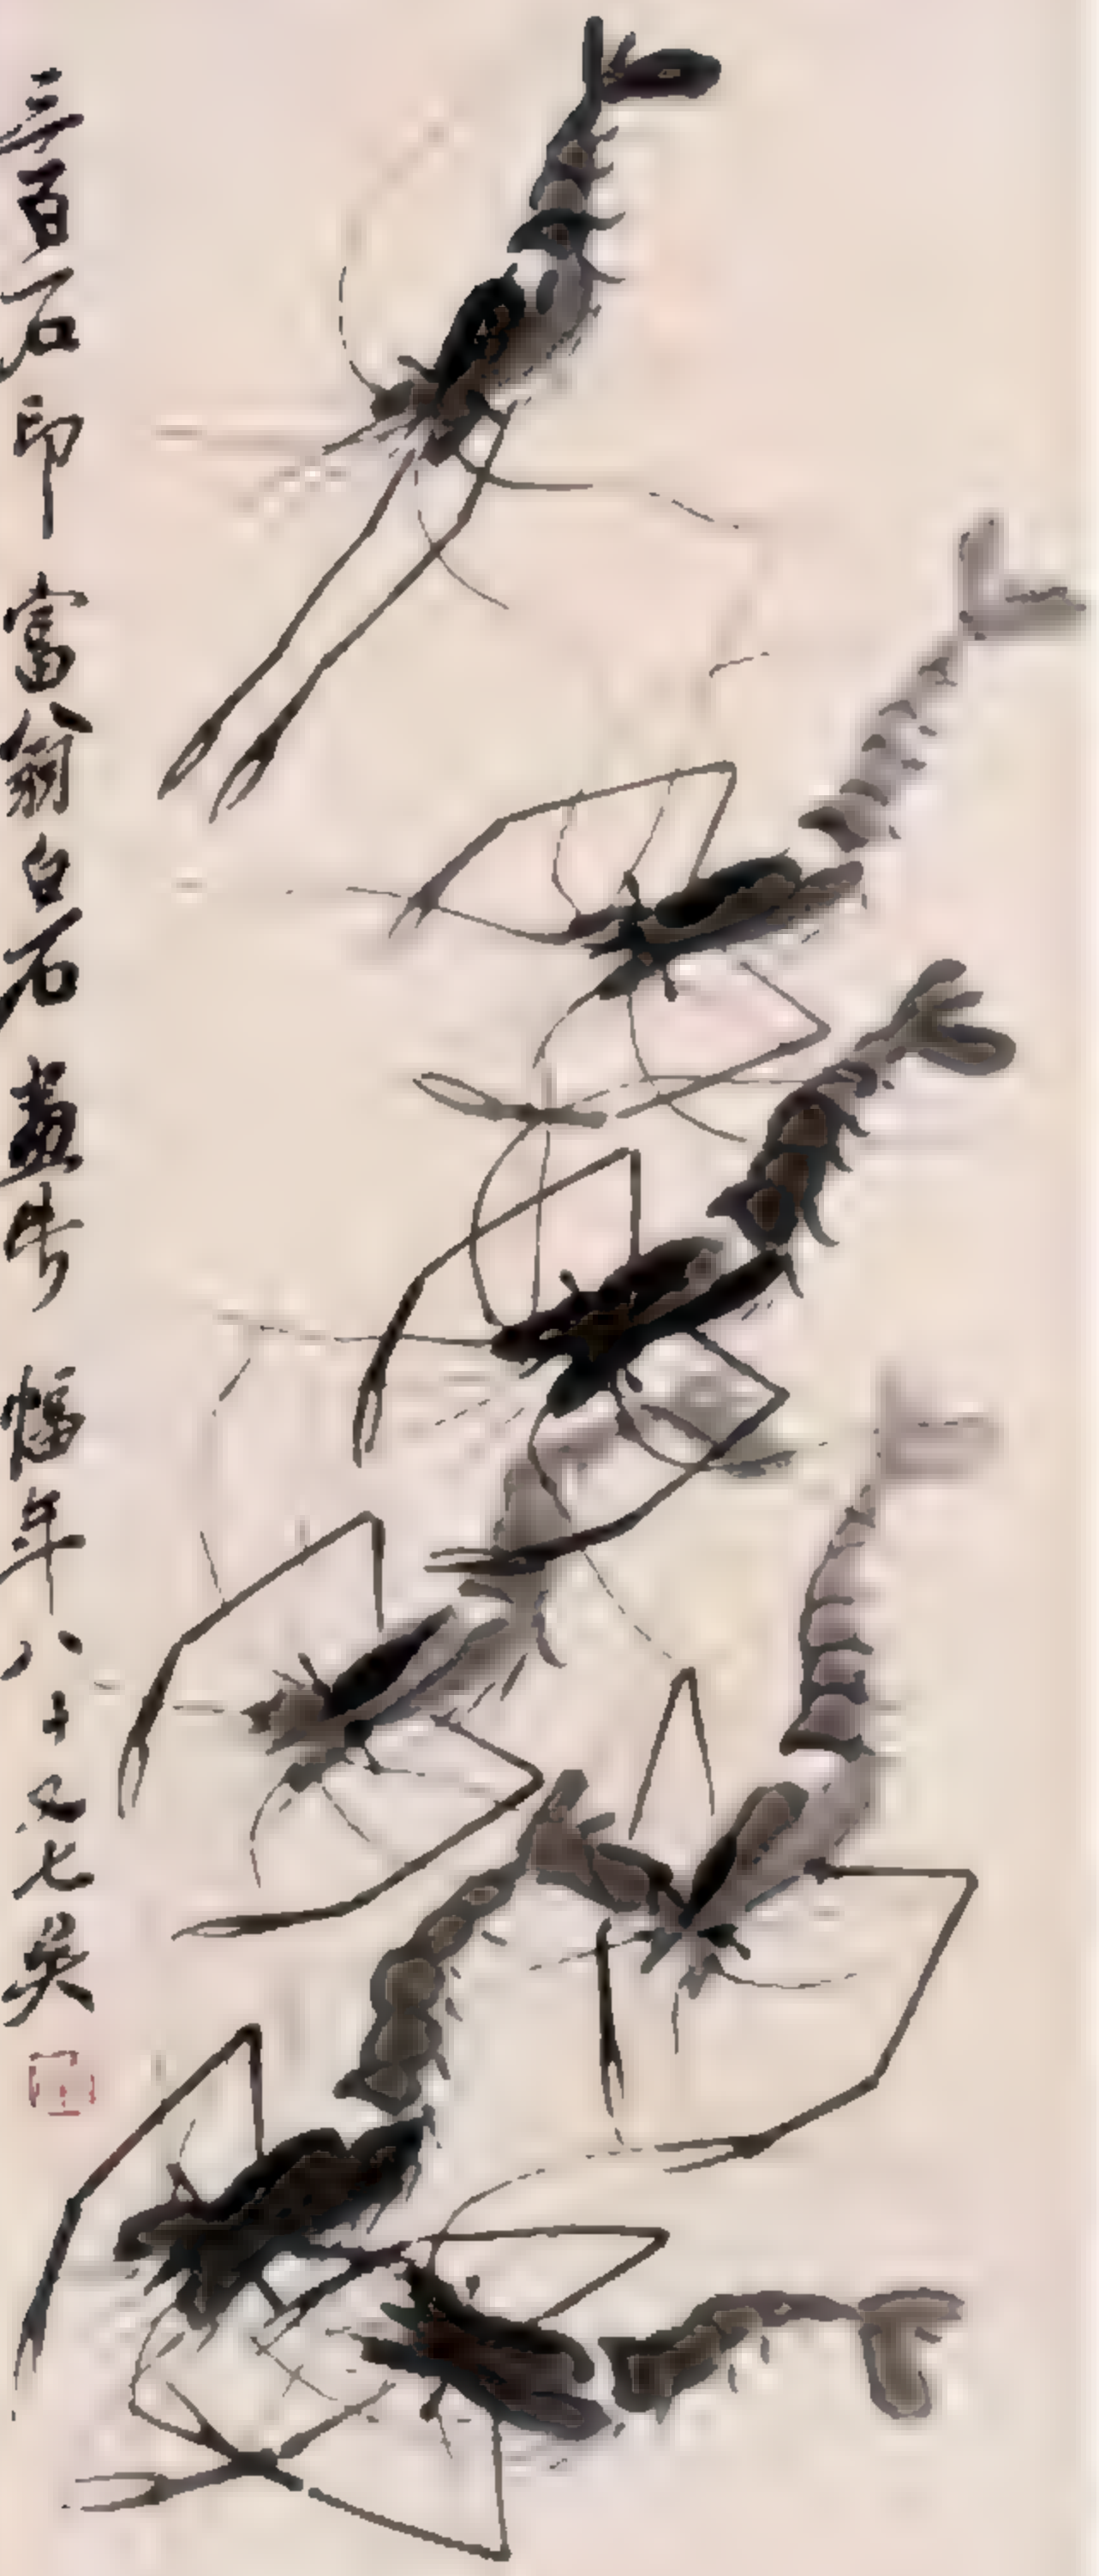 三百石印富翁白石画第幅年八十又七矣